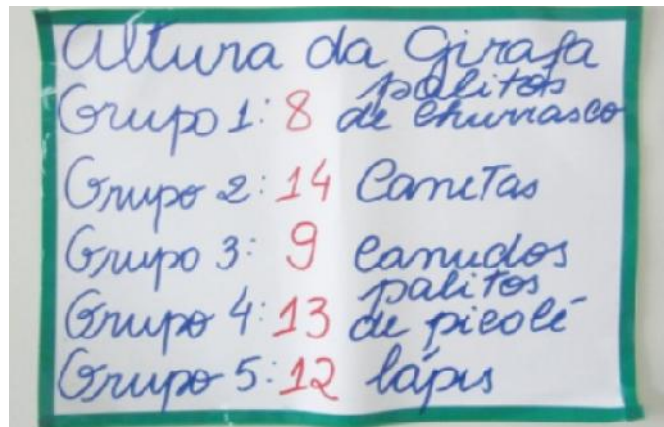 Altura da Girafa
Grupo 1: 8 palitos de churrasco
Grupo 2: 14 Canetas
Grupo 3: 9 canudos
Grupo 4: 13 palitos de picolé
Grupo 5: 12 lápis